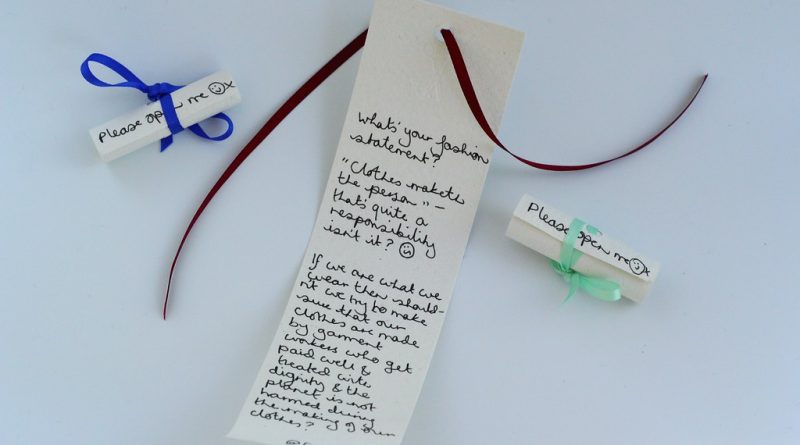 Please open me x
What's your fashion
statement?
"Clothes maketh
the person" –
that's quite a
responsibility
isn't it?
If we are what we
wear then should-
n't we try to make
sure that our
clothes are made
by garment
workers who get
paid well &
treated with
dignity & the
planet is not
harmed during
the making of our
clothes?
Please open me x